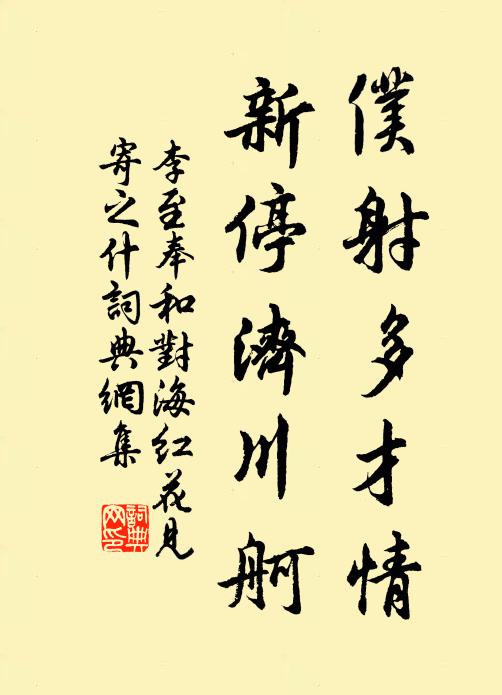 僕射多才情
新停濟川舸
李至奉和對海紅花見
寄之什詞典網集
詞典
网印